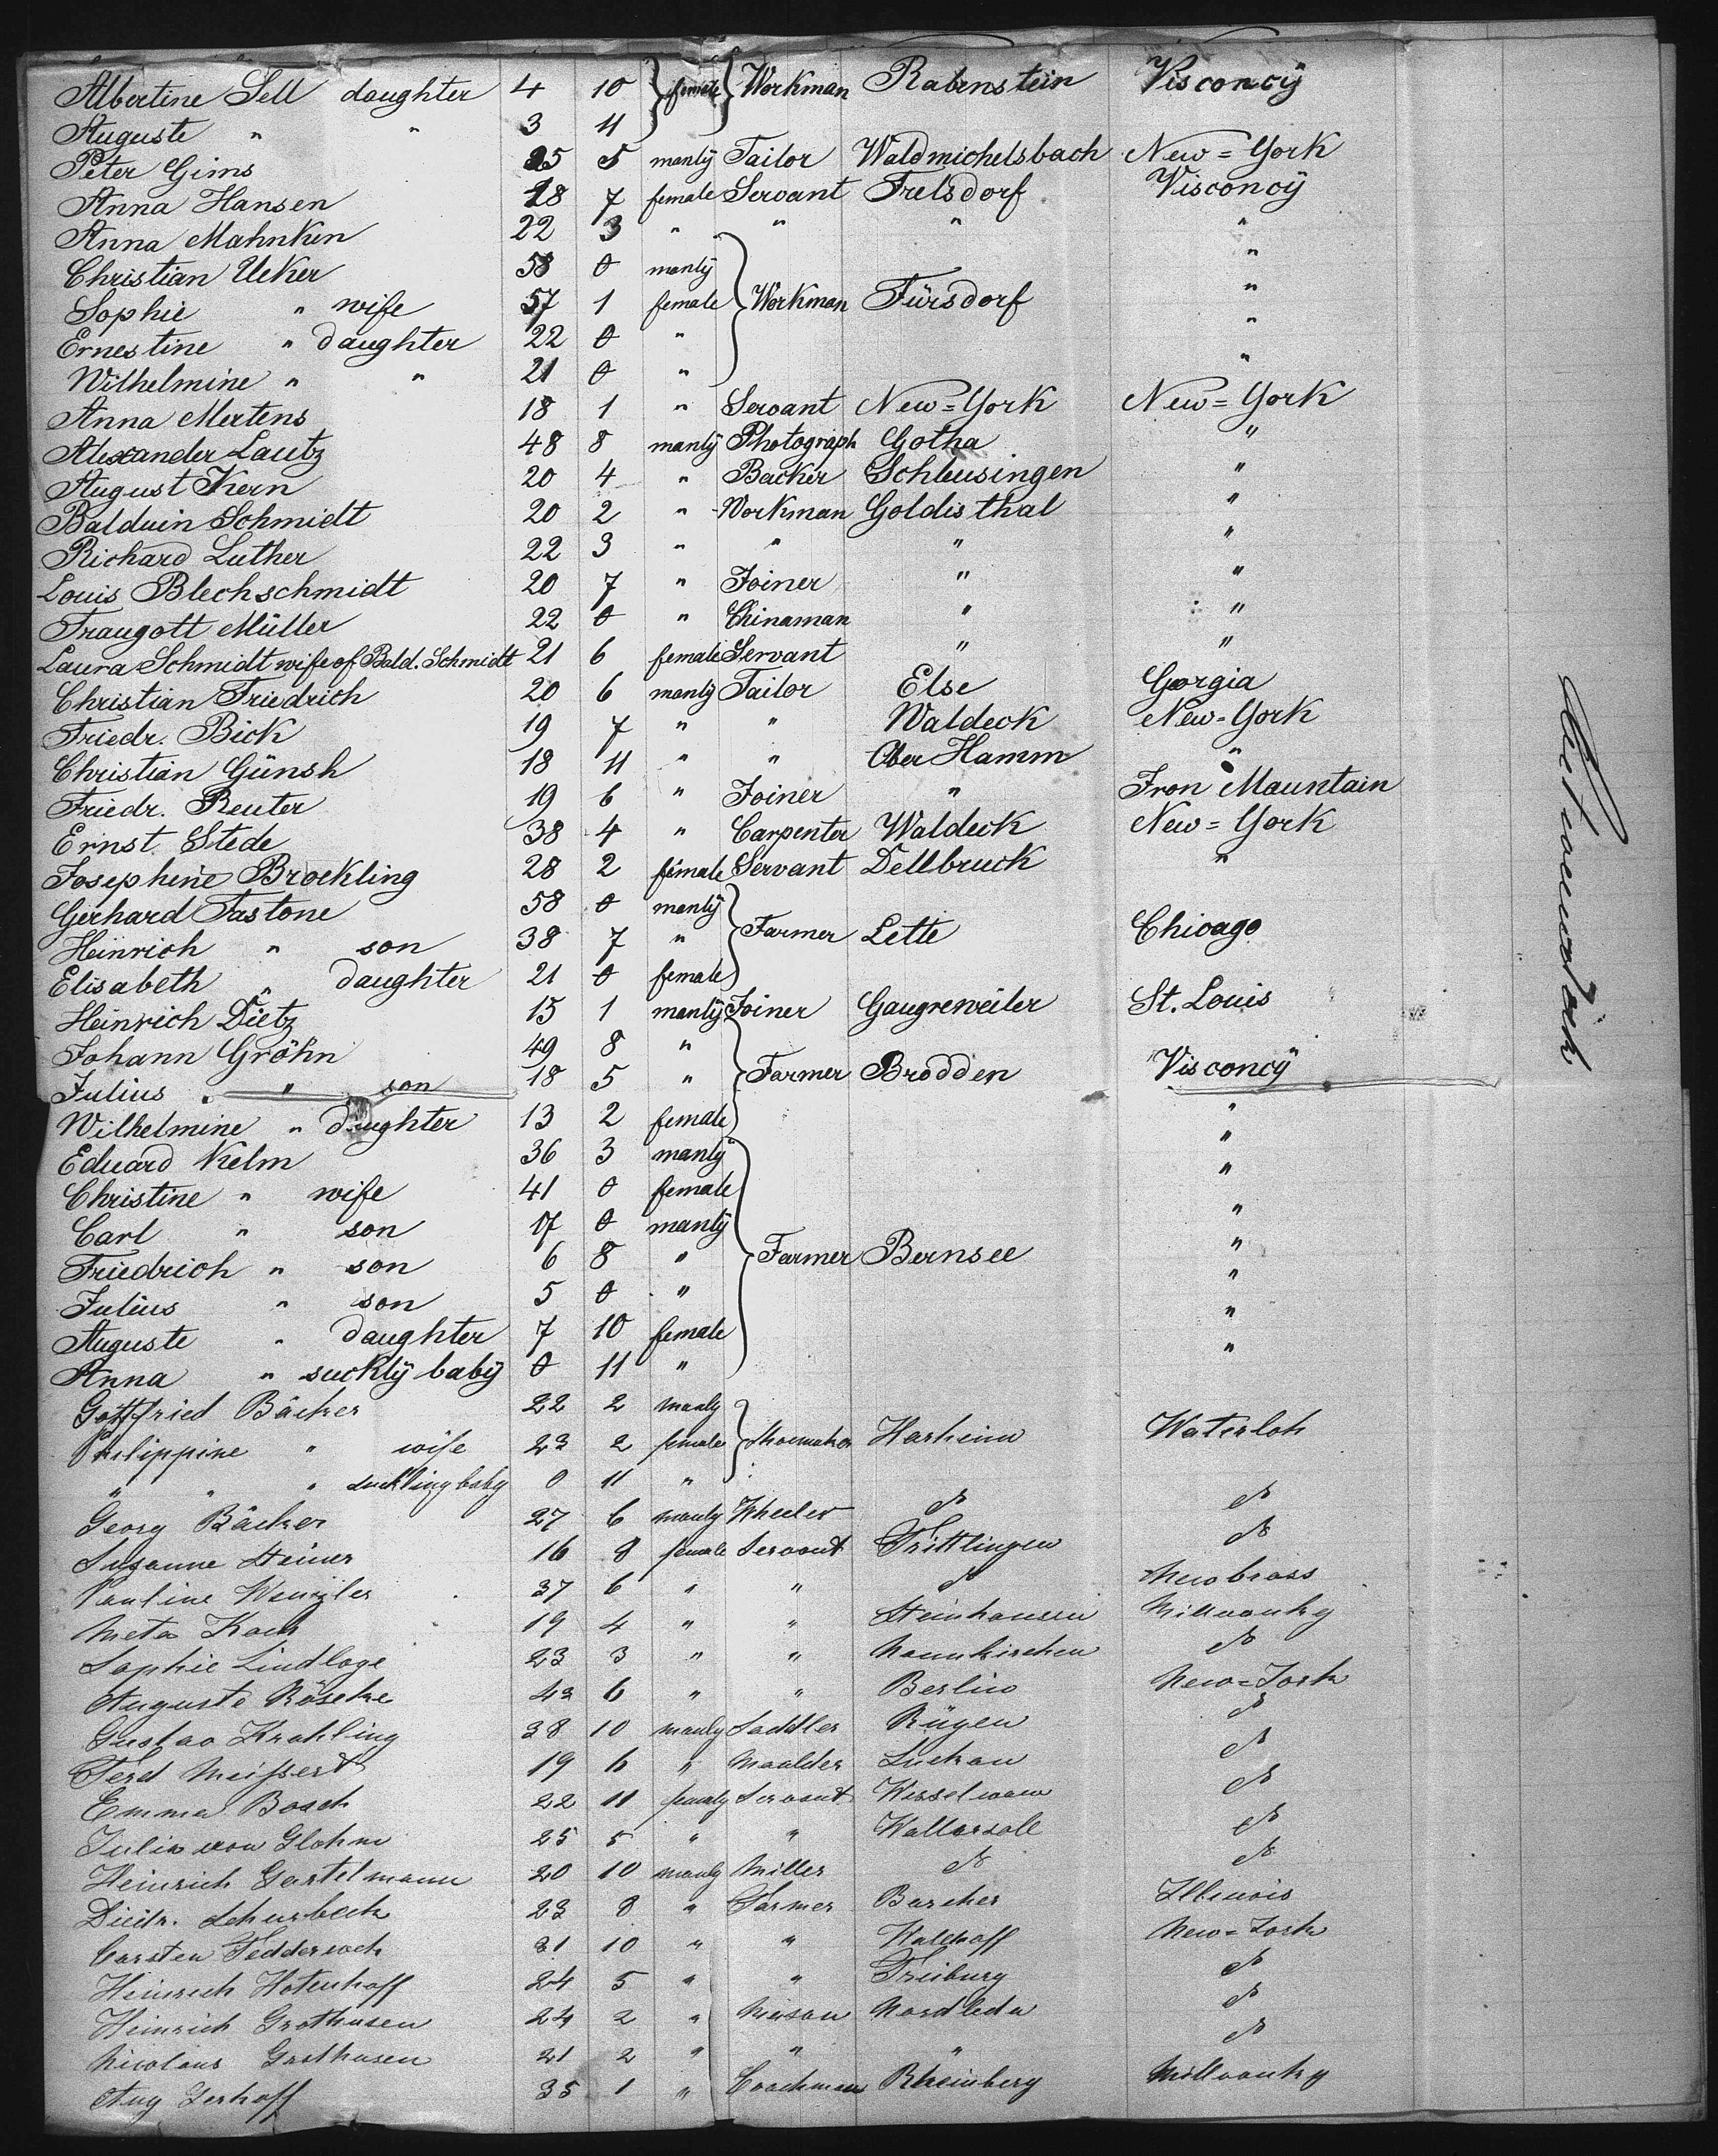 Albertine Sell daughter 4 10 female Workman Rabenstein Visconcÿ
Auguste " " 3 11
Peter Gims 25 5 manlÿ Tailor Waldmichelsbach New=York
Anna Hansen 18 7 female Servant Frelsdorf Visconcÿ
Anna Mahnken 22 3 " " " "
Christian Ueker 58 0 manlÿ "
Sophie " wife 57 1 female Workman Fürsdorf "
Ernestine " daughter 22 0 " "
Wilhelmine " " 21 0 " "
Anna Mertens 18 1 " Servant New=York New=York
Alexander Lautz 48 8 manlÿ Photograph Gotha "
August Kern 20 4 " Backer Schleusingen "
Balduin Schmidt 20 2 " Workman Goldisthal "
Richard Luther 22 3 " " " "
Louis Blechschmidt 20 7 " Joiner " "
Traugott Müller 22 0 " Chinaman " "
Laura Schmidt wife of Bald. Schmidt 21 6 female Servant " "
Christian Friedrich 20 6 manlÿ Tailor Else Georgia
Friedr. Bick 19 7 " " Waldeck New=York
Christian Günsh 18 11 " " Ober Hamm "
Friedr. Reuter 19 6 " Joiner " Iron Mauntain
Ernst Stede 38 4 " Carpenter Waldeck New=York
Josephine Brockling 28 2 female Servant Dellbruck "
Gerhard Fastone 58 0 manlÿ
Heinrich " son 38 7 " Farmer Lette Chicago
Elisabeth " daughter 21 0 female
Heinrich Dietz 15 1 manlÿ Joiner Gaugreweiler St. Louis
Johann Gröhn 49 8 "
Julius " son 18 5 " Farmer Brodden Visconcÿ
Wilhelmine " daughter 13 2 female "
Eduard Kelm 36 3 manlÿ "
Christine " wife 41 0 female "
Carl " son 17 0 manlÿ "
Friedrich " son 6 8 " Farmer Bernsee "
Julius " son 5 0 " "
Auguste " daughter 7 10 female "
Anna " sucklÿ babÿ 0 11 " "
Gottfried Bäcker 22 2 manly
Philippine " wife 23 2 female Shoemaker Harheim Waterloh
" " " suckling baby 0 11 "
Georg Bäcker 27 6 manly Wheeler do do
Susanne Steiner 16 8 female Servant Trittlingen do
Pauline Wenzler 37 6 " " do Newbrass
Meta Koch 19 4 " " Steinhausen Millwauky
Sophie Lindloge 23 3 " " Naunkirchen do
Auguste Röseke 43 6 " " Berlin New=York
Gustav Krahling 38 10 manly Saddler Rügen do
Ferd Meissert 19 6 " Moulder Luckau do
Emma Bosch 22 11 femaly Servant do
Julia von Glahn 25 5 " " do
Heinrich Gartelmann 20 10 manly Miller do do
Diedr. Schurbeck 23 8 " Farmer Illinois
Carsten 31 10 " " New=York
Heinrich Hotenhoff 24 5 " " Freiburg do
Heinrich Grothusen 24 2 " Mason Nordleda do
Nicolaus Grothusen 21 2 " " " do
Aug Gerhoff 35 1 " Coachman Rheinberg Millwauky